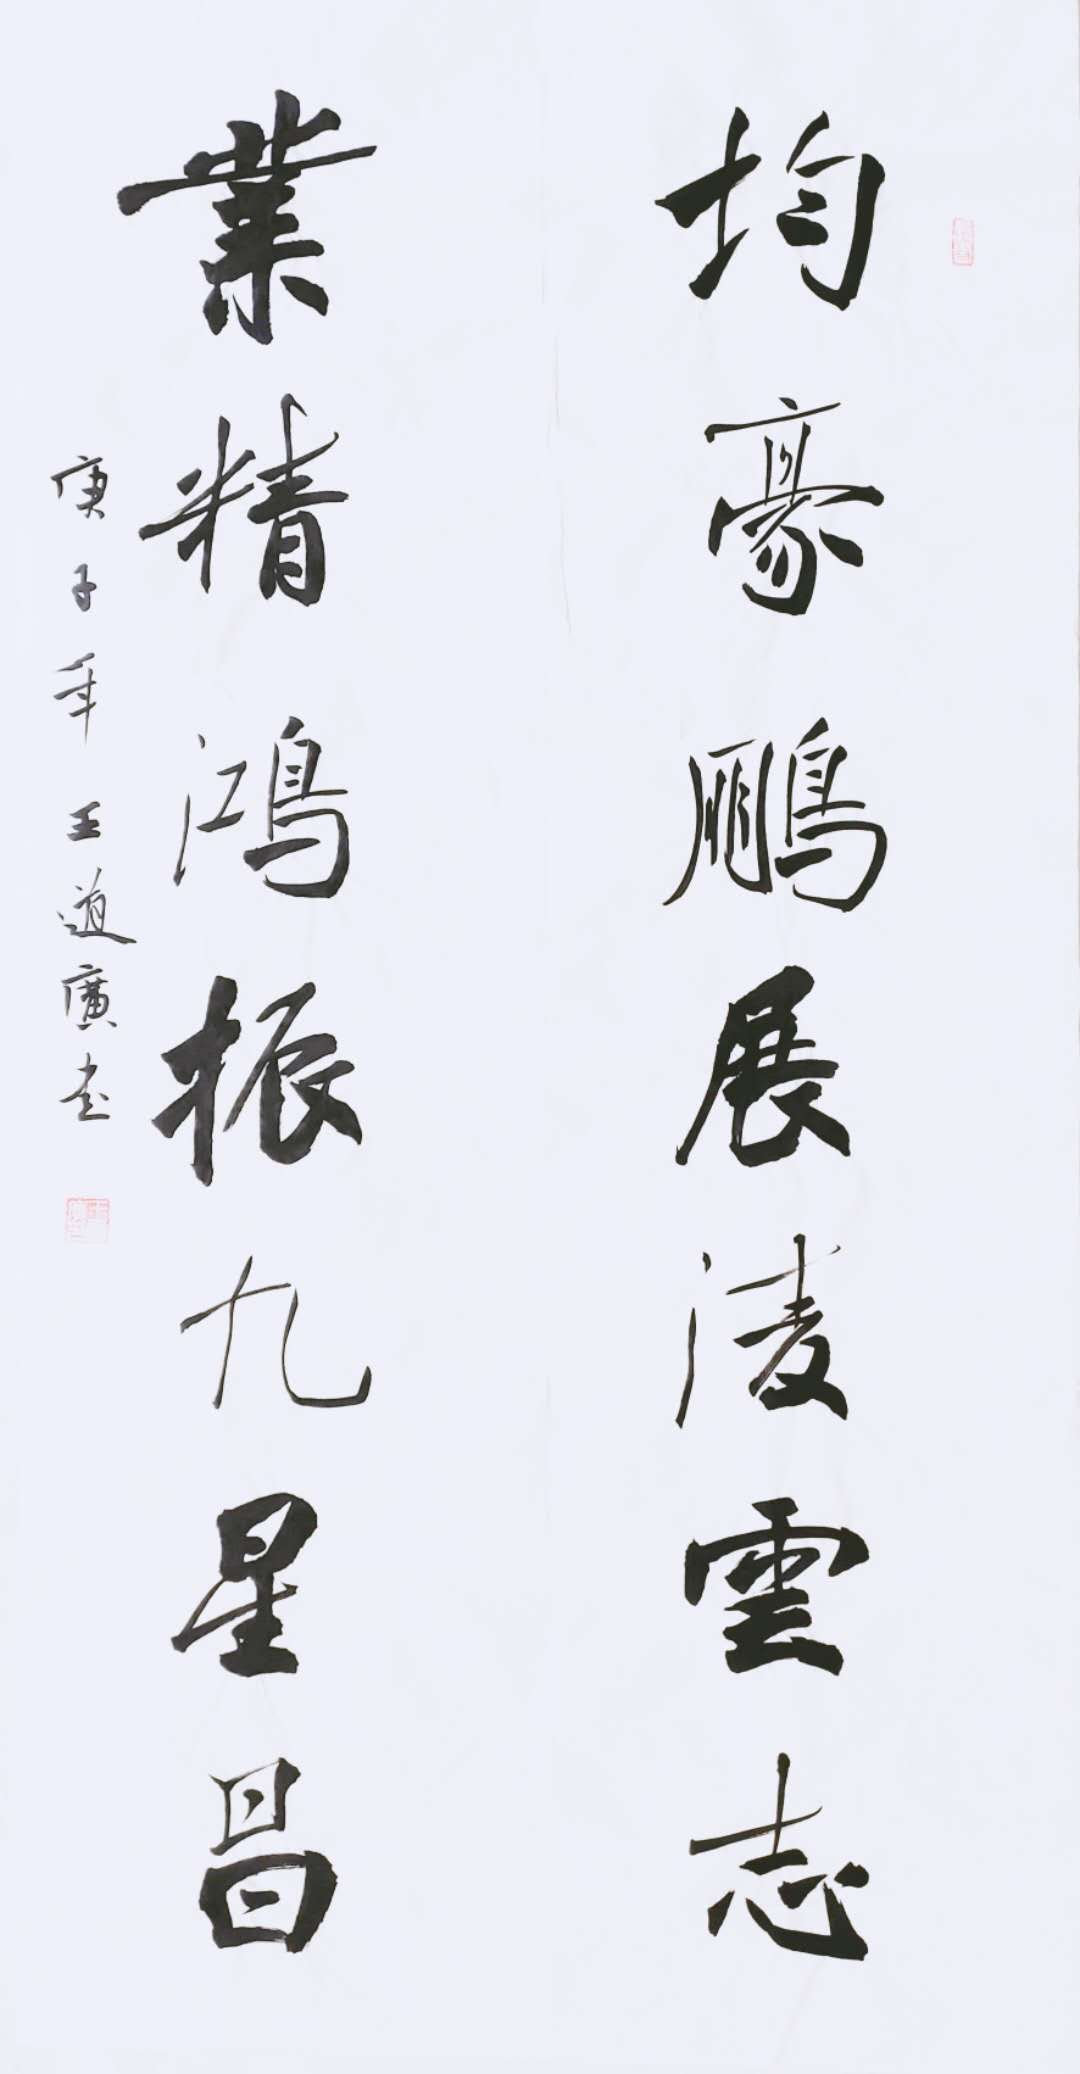 均豪鵬展淩雲志
業精鴻振九星昌
庚子年王道廣书